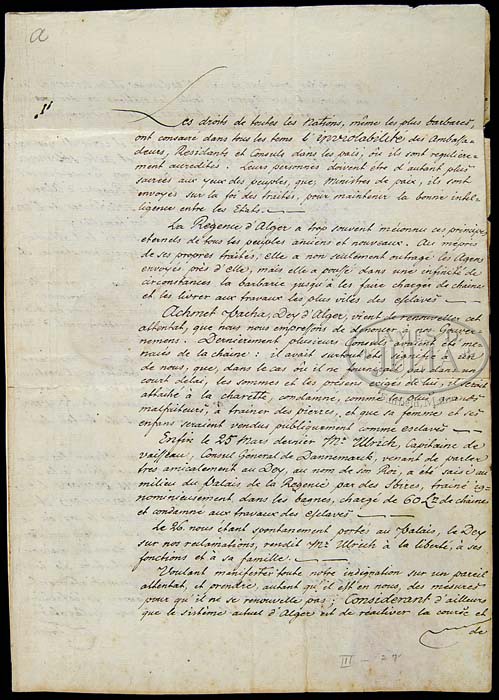 a
1º
Les droits de toutes les Nations, même les plus barbares,
ont consacré dans tous les tems l'inviolabilité des Ambassa-
deurs, Residents et Consuls dans les païs, où ils sont reguliere-
ment accredités. Leurs personnes doivent être d'autant plus
sacrées aux yeux des peuples, que, Ministres de paix, ils sont
envoyés sur la foi des traités, pour maintenir la bonne intel-
ligence entre les Etats.
La Regence d'Alger a trop souvent méconnu ces principes
eternels de tous les peuples anciens et nouveaux. Au mepris
de ses propres traités, elle a non seulement outragé les Agens
envoyés près d'elle, mais elle a poussé dans une infinité de
circonstances la barbarie jusqu'à les faire charger de chaines
et les livrer aux travaux les plus vils des esclaves
Achmet Pacha, Dey d'Alger, vient de renouveller cet
attentat, que nous nous empressons de dénoncer à nos Gouver-
nemens. Dernièrement plusieurs Consuls avaient été me-
nacés de la chaine: il avait surtout été signifié à un
de nous, que, dans le cas où il ne fournirait pas dans un
court delai, les sommes et les présens exigés de lui, il serait
attaché à la charette, condamné, comme les plus grands
malfaiteurs, à trainer des pierres, et que sa femme et ses
enfans seraient vendus publiquement comme esclaves
Enfin le 25 Mars dernier Mr. Ulrich, Capitaine de
vaisseau, Consul General de Dannemarck, venant de parler
très amicalement au Dey, au nom de son Roi, a été saisi au
milieu du Palais de la Regence par des Sbires, trainé ig-
nominieusement dans les bagnes, chargé de 60 Lb de chaines
et condamné aux travaux des esclaves
Le 26 nous étant spontanement portés au Palais, le Dey
sur nos reclamations, rendit Mr. Ulrich à la liberté, à ses
fonctions et à sa famille.
Voulant manifester toute notre indignation sur un pareil
attentat, et prendre, autant qu'il est en nous, des mesures
pour qu'il ne se renouvelle pas; Considerant d'ailleurs
que le sistème actuel d'Alger est de réactiver la course et
de
III - 27
JULIA